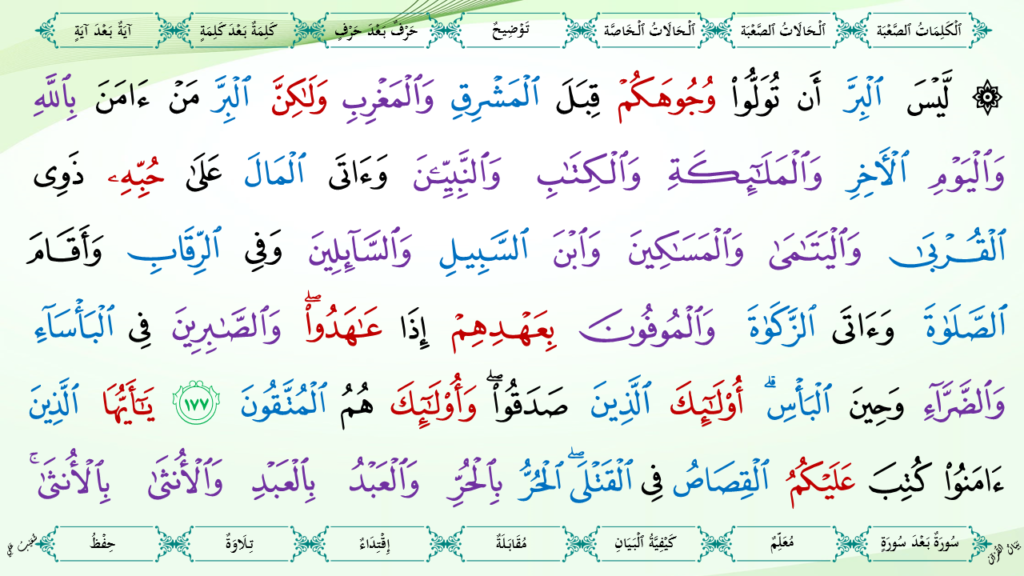 اَلْكَلِمَاتُ الصَّعْبَة اَلْحَالَاتُ الصَّعْبَة اَلْحَالَاتُ الْخَاصَّة تَوْضِيحٌ حَرْفٌ بَعْدَ حَرْفٍ كَلِمَةٌ بَعْدَ كَلِمَةٍ آيَةٌ بَعْدَ آيَةٍ
۞ لَّيْسَ ٱلْبِرَّ أَن تُوَلُّوا۟ وُجُوهَكُمْ قِبَلَ ٱلْمَشْرِقِ وَٱلْمَغْرِبِ وَلَـٰكِنَّ ٱلْبِرَّ مَنْ ءَامَنَ بِٱللَّهِ
وَٱلْيَوْمِ ٱلْـَٔاخِرِ وَٱلْمَلَـٰٓئِكَةِ وَٱلْكِتَـٰبِ وَٱلنَّبِيِّـۧنَ وَءَاتَى ٱلْمَالَ عَلَىٰ حُبِّهِۦ ذَوِى
ٱلْقُرْبَىٰ وَٱلْيَتَـٰمَىٰ وَٱلْمَسَـٰكِينَ وَٱبْنَ ٱلسَّبِيلِ وَٱلسَّآئِلِينَ وَفِى ٱلرِّقَابِ وَأَقَامَ
ٱلصَّلَوٰةَ وَءَاتَى ٱلزَّكَوٰةَ وَٱلْمُوفُونَ بِعَهْدِهِمْ إِذَا عَـٰهَدُوا۟ ۖ وَٱلصَّـٰبِرِينَ فِى ٱلْبَأْسَآءِ
وَٱلضَّرَّآءِ وَحِينَ ٱلْبَأْسِ ۗ أُو۟لَـٰٓئِكَ ٱلَّذِينَ صَدَقُوا۟ ۖ وَأُو۟لَـٰٓئِكَ هُمُ ٱلْمُتَّقُونَ ١٧٧ يَـٰٓأَيُّهَا ٱلَّذِينَ
ءَامَنُوا۟ كُتِبَ عَلَيْكُمُ ٱلْقِصَاصُ فِى ٱلْقَتْلَى ۖ ٱلْحُرُّ بِٱلْحُرِّ وَٱلْعَبْدُ بِٱلْعَبْدِ وَٱلْأُنثَىٰ بِٱلْأُنثَىٰ ۚ
سُورَةٌ بَعْدَ سُورَةٍ مُعَلِّمٌ كَيْفِيَّةُ الْبَيَانِ مُقَابَلَةٌ اِقْتِدَاءٌ تِلَاوَةٌ حِفْظٌ
بَيَانُ الْقُرْآنِ